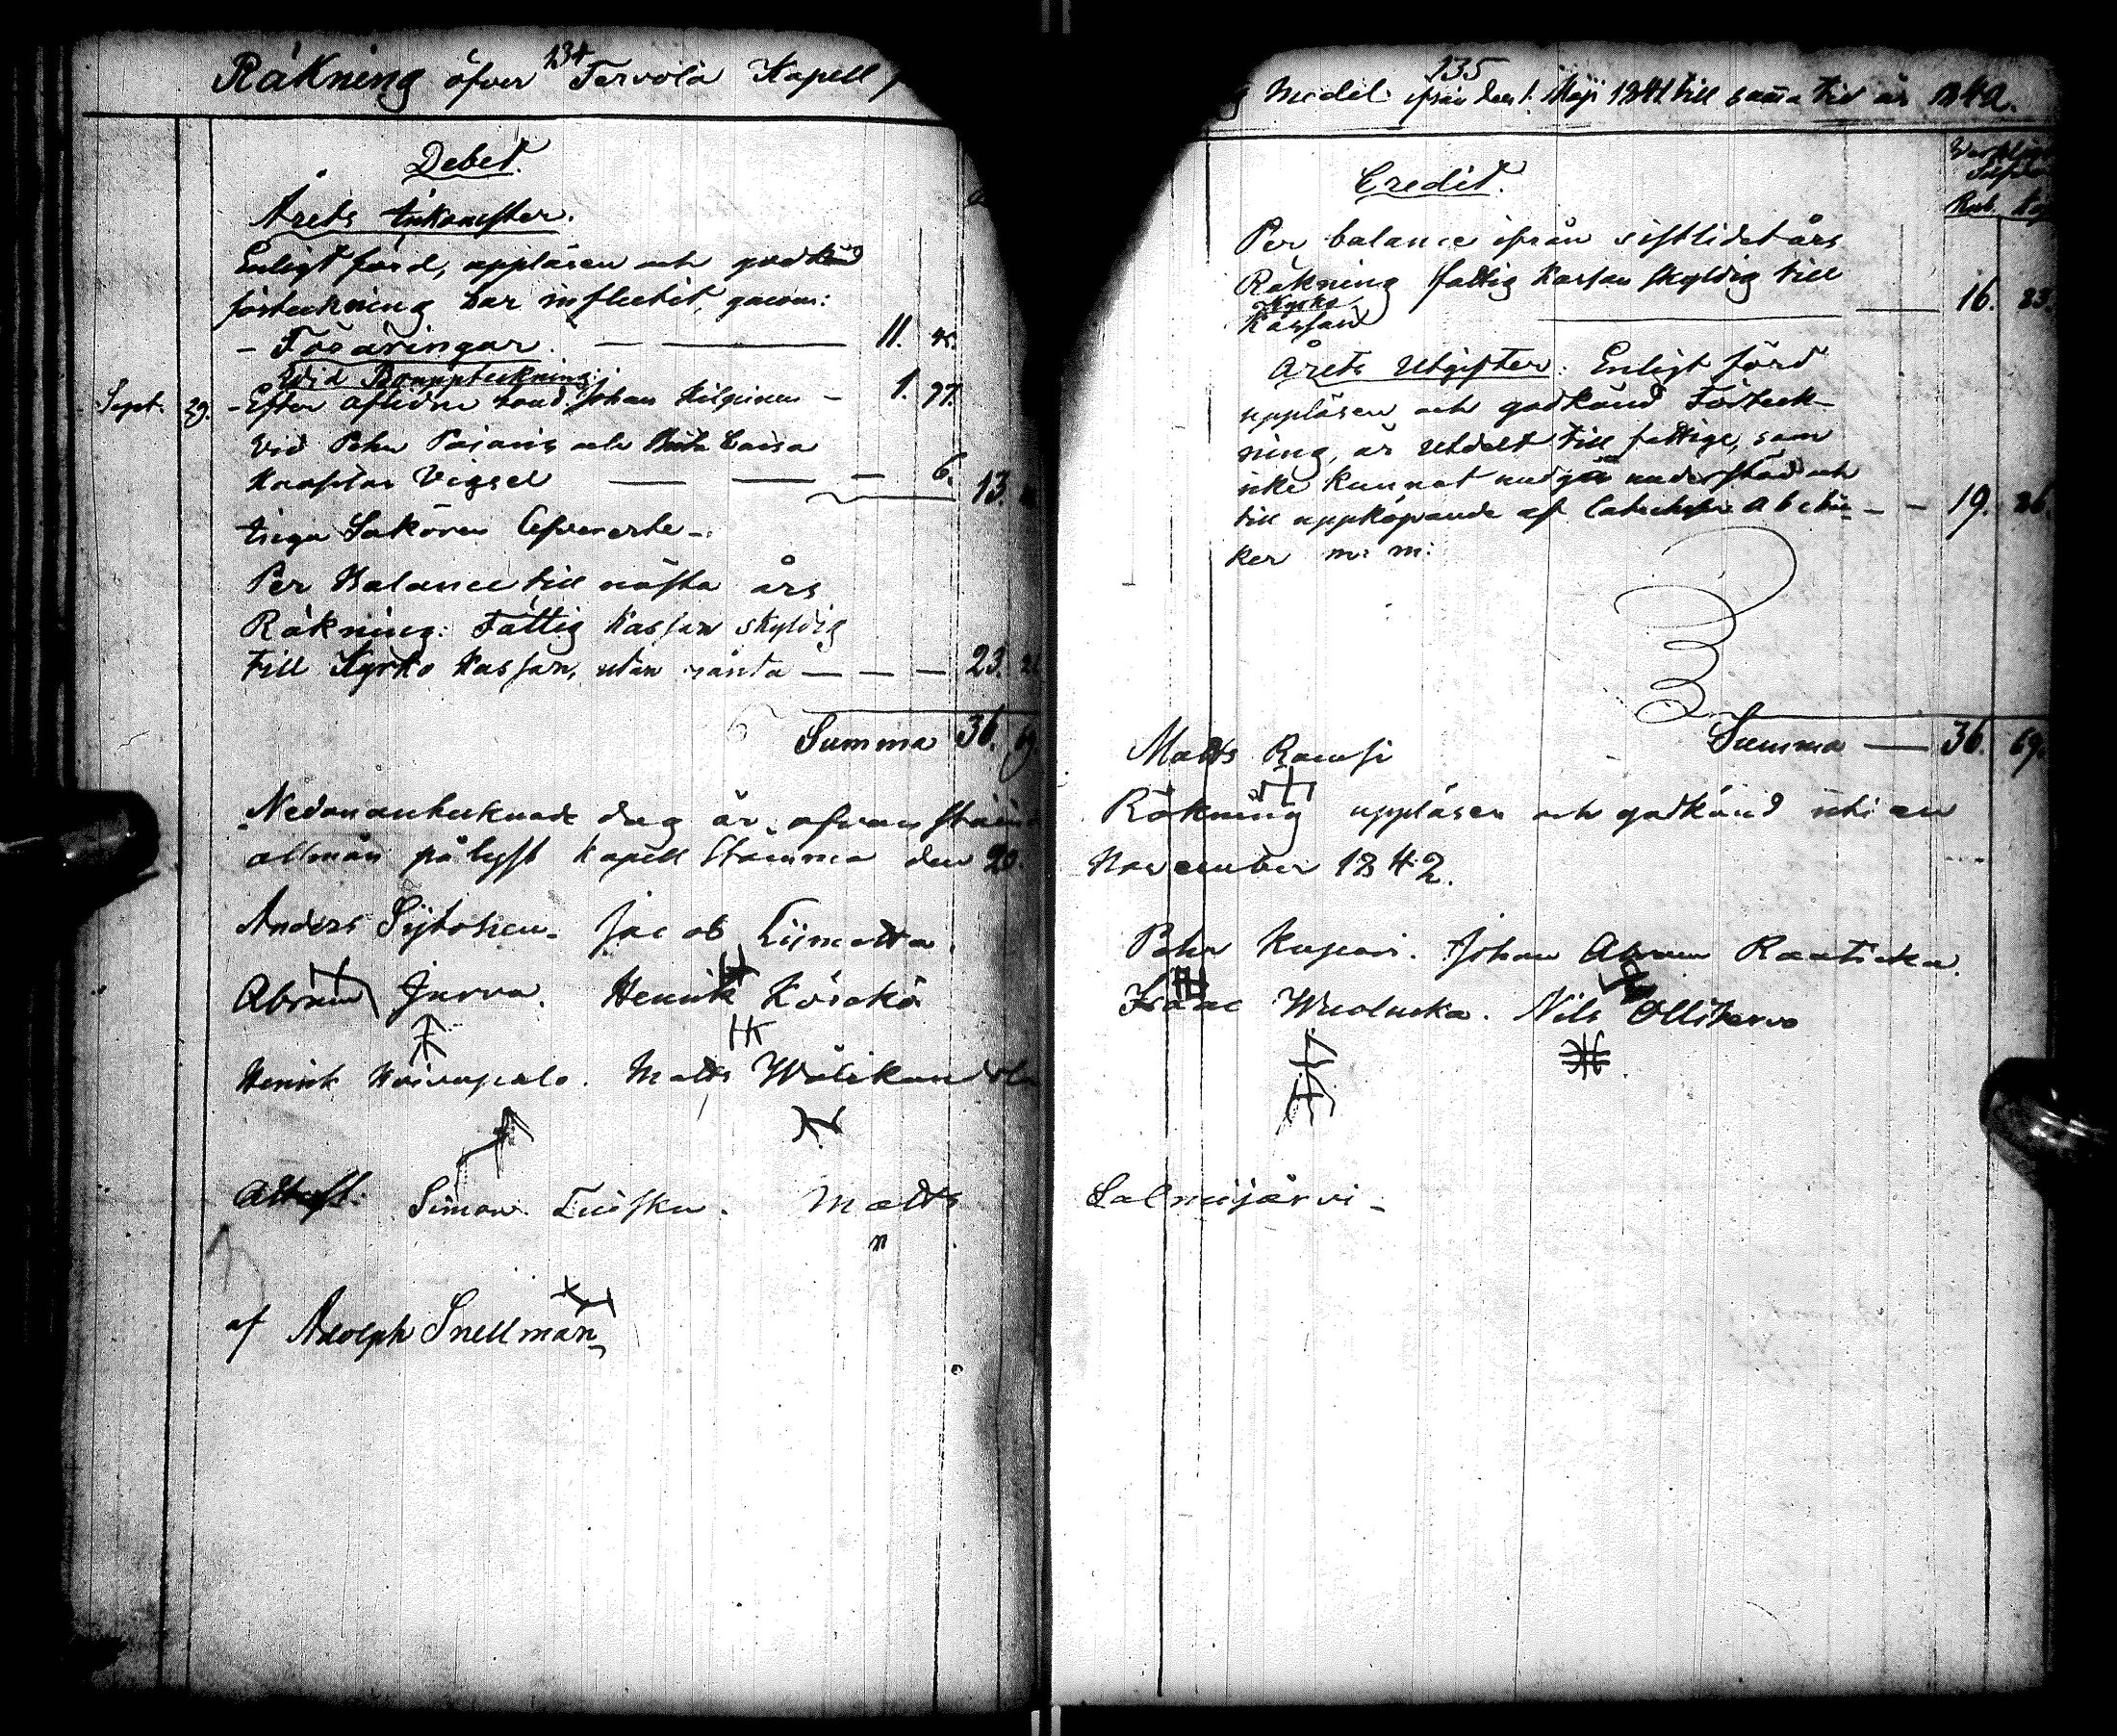 134
Räkning öfver Tervola Kapell
Debet.
Årets Inkomster.
Enligt förd, uppläsen och godkänd
förteckning har influtit, genom:
- Föräringar. 11. 45.
Wid Bouppteckning:
Sept. 29. - Efter aflidne Johan Kilpinen - 1. 97.
Vid Pehr Pajaris och Brita Caisa
Vigsel 6.
13.
inga Sakören
Per Balance till nästa års
Räkning: Fattig Kassan skyldig
till Kyrko Kassan, utan ränta - - - 23.
Summa 36. 69.
Nedanantecknade dag är ofvanstående
allmän pålyst Kapell Stämma den 20.
Anders Jacob Liimatta.
Abram Jurva. Henrik
Henrik Koivupalo. Matts
Attest. Simon Luisku. Matts
n
af Adolph Snellman
135
Medel ifrån den 1. Maji 1841 till samma tid år 1842.
Credit.
Rub. Kop
Per balance ifrån sistlidet års
Räkning fattig Kassan skyldig till
Kyrko
Kassan 16. 83.
Årets Utgifter: Enligt förd
uppläsen och godkänd Förteck-
ning, är utdelt till fattige, som
icke kunnat undgå understöd och
till uppköpande af Abcbö- - - 19. 86.
ker m: m:
Summa 36. 69.
Matts Rousi
Räkning uppläsen och godkänd uti en
November 1842.
Pehr Kupari. Johan Abram Rautioka.
Isaac Wuolucka. Nils Ollikervo
Salmijärvi -